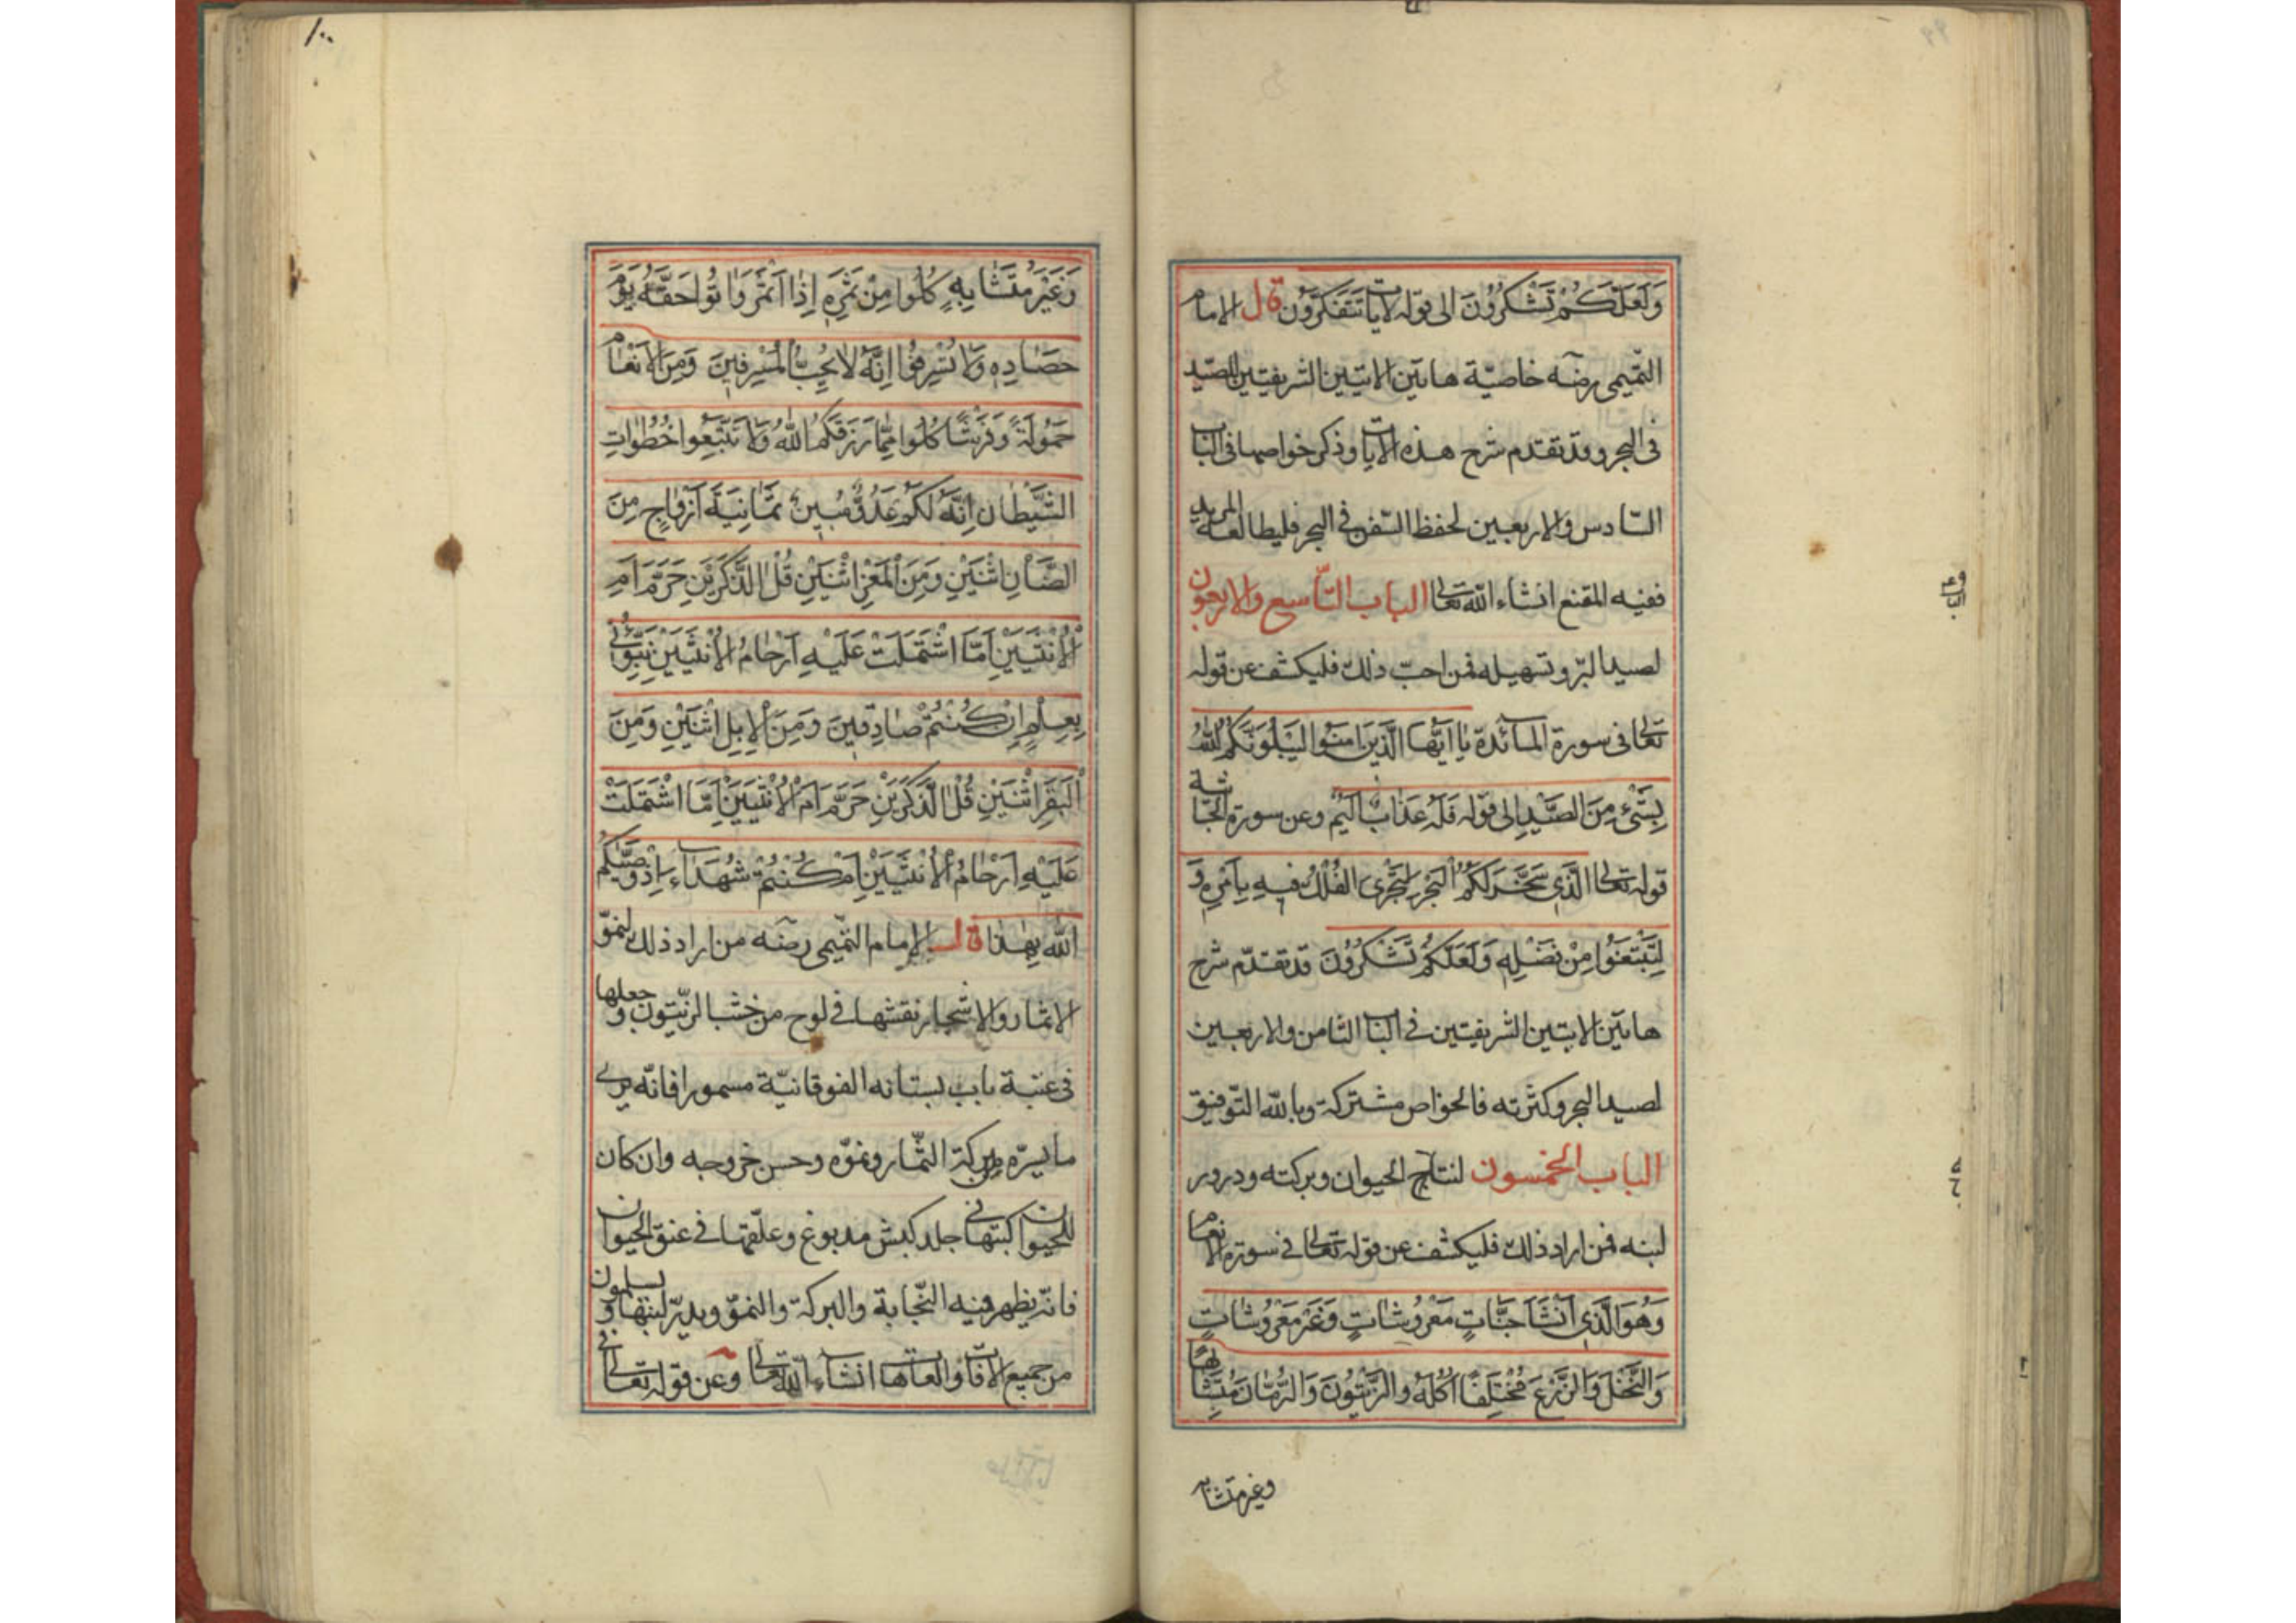 وَلَعَلَّكُمْ تَشْكُرُونَ الى قوله لايات تَتَفَكَّرُون قال الامام
التّميمى رضه خاصيّة هاتين الايتين الشريفتين للصّيد
فى البحر وقد تقدم شرح هذه الايات وذكر خواصها فى الباب
السّادس والاربعين لحفظ السّفن فى البحر فليطالعه المريد
ففيه المقنع انشاء الله تعالى الباب التّاسع والاربعون
لصيد البرّ وتسهيله فمن احبّ ذلك فليكشف عن قوله
تعالى فى سورة المائدة يٰا اَيُّهَا الَّذينَ امَنُوا لَيَبْلُوَنَّكُمُ اللّٰهُ
بِشَىْءٍ مِنَ الصَّيْدِ الى قوله فَلَهُ عَذٰابٌ اَليٖم وعن سورة الجاثية
قوله تعالى الَّذى سَخَّرَ لَكُمُ الْبَحْرَ لِتَجْرِىَ الْفُلْكُ فيهِ بِاَمْرِهٖ وَ
لِتَبْتَغُوا مِنْ فَضْلِهٖ وَلَعَلَّكُمْ تَشْكُرُونَ قد تقدّم شرح
هاتين الايتين الشريفتين فى الباب الثامن والاربعين
لصيد البحر وكثرته فالخواص مشتركة وبالله التّوفيق
الباب الخمسون لنتاج الحيوان وبركته ودرور
لبنه فمن اراد ذلك فليكشف عن قوله تعالى فى سورة الانعام
وَهُوَ الَّذى اَنْشَاَ جَنّٰاتٍ مَعْرُوشٰاتٍ وَغَيْرَ مَعْرُوشٰاتٍ
وَالنَّخْلَ وَالزَّرْعَ مُخْتَلِفًا اُكُلُهُ والزَّيْتُونَ وَالرُّمّٰانَ مُتَشٰابِهًا
وغير متشابه
١٠٠
وَغَيْرَ مُتَشٰابِهٍ كُلُوا مِنْ ثَمَرِهٖ اِذٰا اَثْمَرَ وَاٰتُوا حَقَّهُ يَوْمَ
حَصٰادِهٖ وَلٰا تُسْرِفُوا اِنَّهُ لٰا يُحِبُّ الْمُسْرِفينَ وَمِنَ الْاَنْعٰامِ
حَمُولَةً وَفَرْشًا كُلُوا مِمّٰا رَزَقَكُمُ اللّٰهُ وَلٰا تَتَّبِعُوا خُطُوٰاتِ
الشَّيْطٰانِ اِنَّهُ لَكُمْ عَدُوٌّ مُبينٌ ثَمٰانِيَةَ اَزْوٰاجٍ مِنَ
الضَّأْنِ اثْنَيْنِ وَمِنَ الْمَعْزِ اثْنَيْنِ قُلْ الذَّكَرَيْنِ حَرَّمَ اَمِ
الْاُنْثَيَيْنِ اَمَّا اشْتَمَلَتْ عَلَيْهِ اَرْحٰامُ الْاُنْثَيَيْنِ نَبِّؤُنى
بِعِلْمٍ اِنْ كُنْتُمْ صٰادِقينَ وَمِنَ الْاِبِلِ اثْنَيْنِ وَمِنَ
الْبَقَرِ اثْنَيْنِ قُلْ الذَّكَرَيْنِ حَرَّمَ اَمِ الْاُنْثَيَيْنِ اَمَّا اشْتَمَلَتْ
عَلَيْهِ اَرْحٰامُ الْاُنْثَيَيْنِ اَمْ كُنْتُمْ شُهَدٰاءَ اِذْ وَصّٰيكُمُ
اللّٰهُ بِهٰذٰا قال الامام التّميمى رضه من اراد ذلك لنموّ
الاثمار والاشجار نقشها فى لوح من خشب الزّيتون وجعلها
فى عتبة باب بستانه الفوقانيّة مسمورا فانّه يرى
ما يسرّه من بركة الثّمار ونموّه وحسن خروجه وان كان
للحيوان كتبها فى جلد كبش مدبوغ وعلّقها فى عنق الحيوان
فانّه يظهر فيه النّجابة والبركة والنموّ ويدرّ لبنها ويسلمون
من جميع الافات والعاهات انشاء الله تعالى وعن قوله تعالى فى